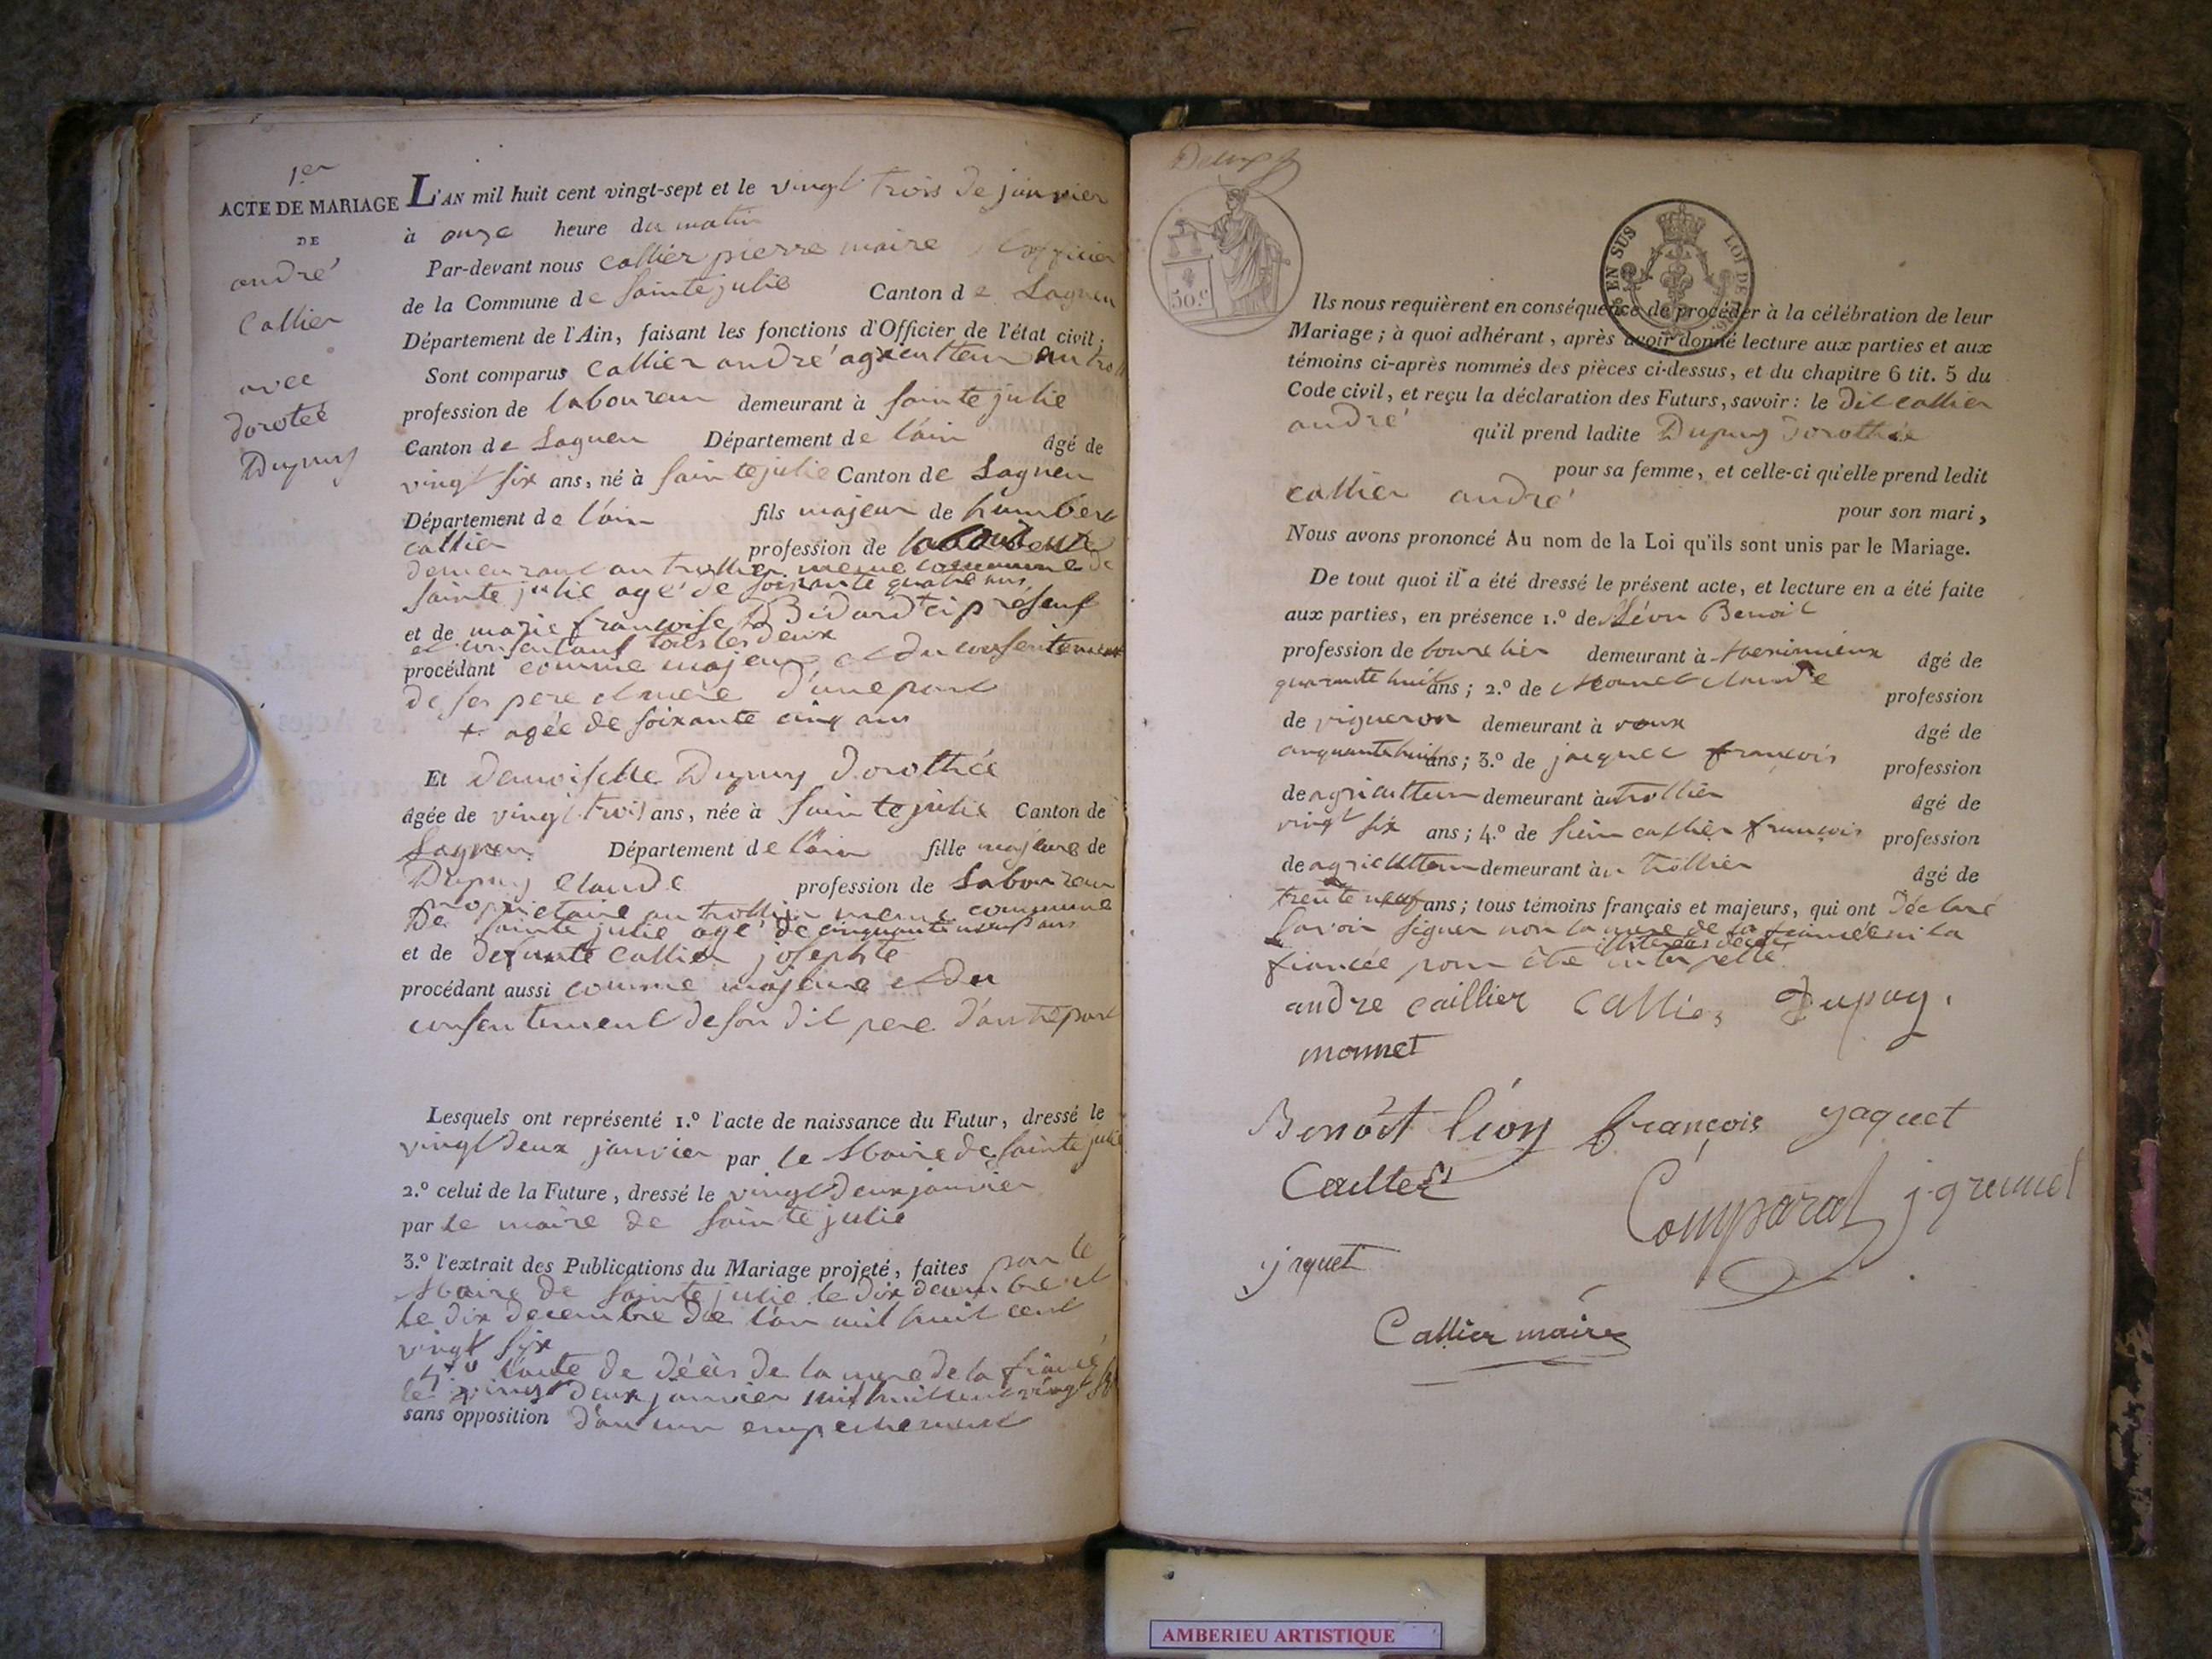 1er
ACTE DE MARIAGE
DE
andré
Callier
avec
dorotée
Dupuy
L'AN mil huit cent vingt-sept et le vingt trois de janvier
à onze heure du matin
Par-devant nous callier pierre maire officier
de la Commune de sainte julie Canton de Lagneu
Département de l'Ain, faisant les fonctions d'Officier de l'état civil;
Sont comparus callier andré agriculteur au
profession de laboureur demeurant à sainte julie
Canton de Lagneu Département de l'ain âgé de
vingt six ans, né à sainte julie Canton de Lagneu
Département de l'ain fils majeur de humbert
callier profession de
demeurant au trollier meme commune de
sainte julie agé de soixante quatre ans
et de marie françoise Bidard + ci présent
et consentant tous les deux
procédant comme majeur et du consentement
de ses pere et mere d'une part
+ agée de soixante cinq ans
Et demoiselle Dupuy dorothée
âgée de vingt trois ans, née à sainte julie Canton de
Lagneu Département de l'ain fille majeure de
Dupuy claude profession de Laboureur
propriétaire au trollier meme commune
De sainte julie agé de cinquante neuf ans
et de defunte callier josephte
procédant aussi comme majeure et du
consentement de son dit pere d'autre part
Lesquels ont représenté 1.º l'acte de naissance du Futur, dressé le
vingt deux janvier par le Maire de sainte julie
2.º celui de la Future, dressé le vingt deux janvier
par le maire de sainte julie
3.º l'extrait des Publications du Mariage projeté, faites par le
Maire de sainte julie le dix decembre et
le dix decembre de l'an mil huit cent
vingt six
4º l'acte de décès de la mere de la fiancé
le vingt deux janvier mil huit cent vingt
sans opposition d'aucun empechement
50.c
EN SUS LOI DE
Ils nous requièrent en conséquence de procéder à la célébration de leur
Mariage; à quoi adhérant, après avoir donné lecture aux parties et aux
témoins ci-après nommés des pièces ci-dessus, et du chapitre 6 tit. 5 du
Code civil, et reçu la déclaration des Futurs, savoir: le dit callier
andré qu'il prend ladite Dupuy dorothée
pour sa femme, et celle-ci qu'elle prend ledit
callier andré pour son mari,
Nous avons prononcé Au nom de la Loi qu'ils sont unis par le Mariage.
De tout quoi il a été dressé le présent acte, et lecture en a été faite
aux parties, en présence 1.º de Léon Benoit
profession de bourelier demeurant à âgé de
quarante huit ans; 2.º de Monnet claude profession
de vigneron demeurant à vaux âgé de
cinquante huit ans; 3.º de jacquet françois profession
de agriculteur demeurant au trollier âgé de
vingt six ans; 4.º de sieur callier françois profession
de agriculteur demeurant au trollier âgé de
trente neuf ans; tous témoins français et majeurs, qui ont déclaré
savoir signer non la mere de la fiancée ni la
fiancée pour être interpellé
andré caillier callier Dupuy.
monnet
Benoit léon françois yaquet
Callier
Comparat j. grumel
jaquet
Callier maire
AMBERIEU ARTISTIQUE